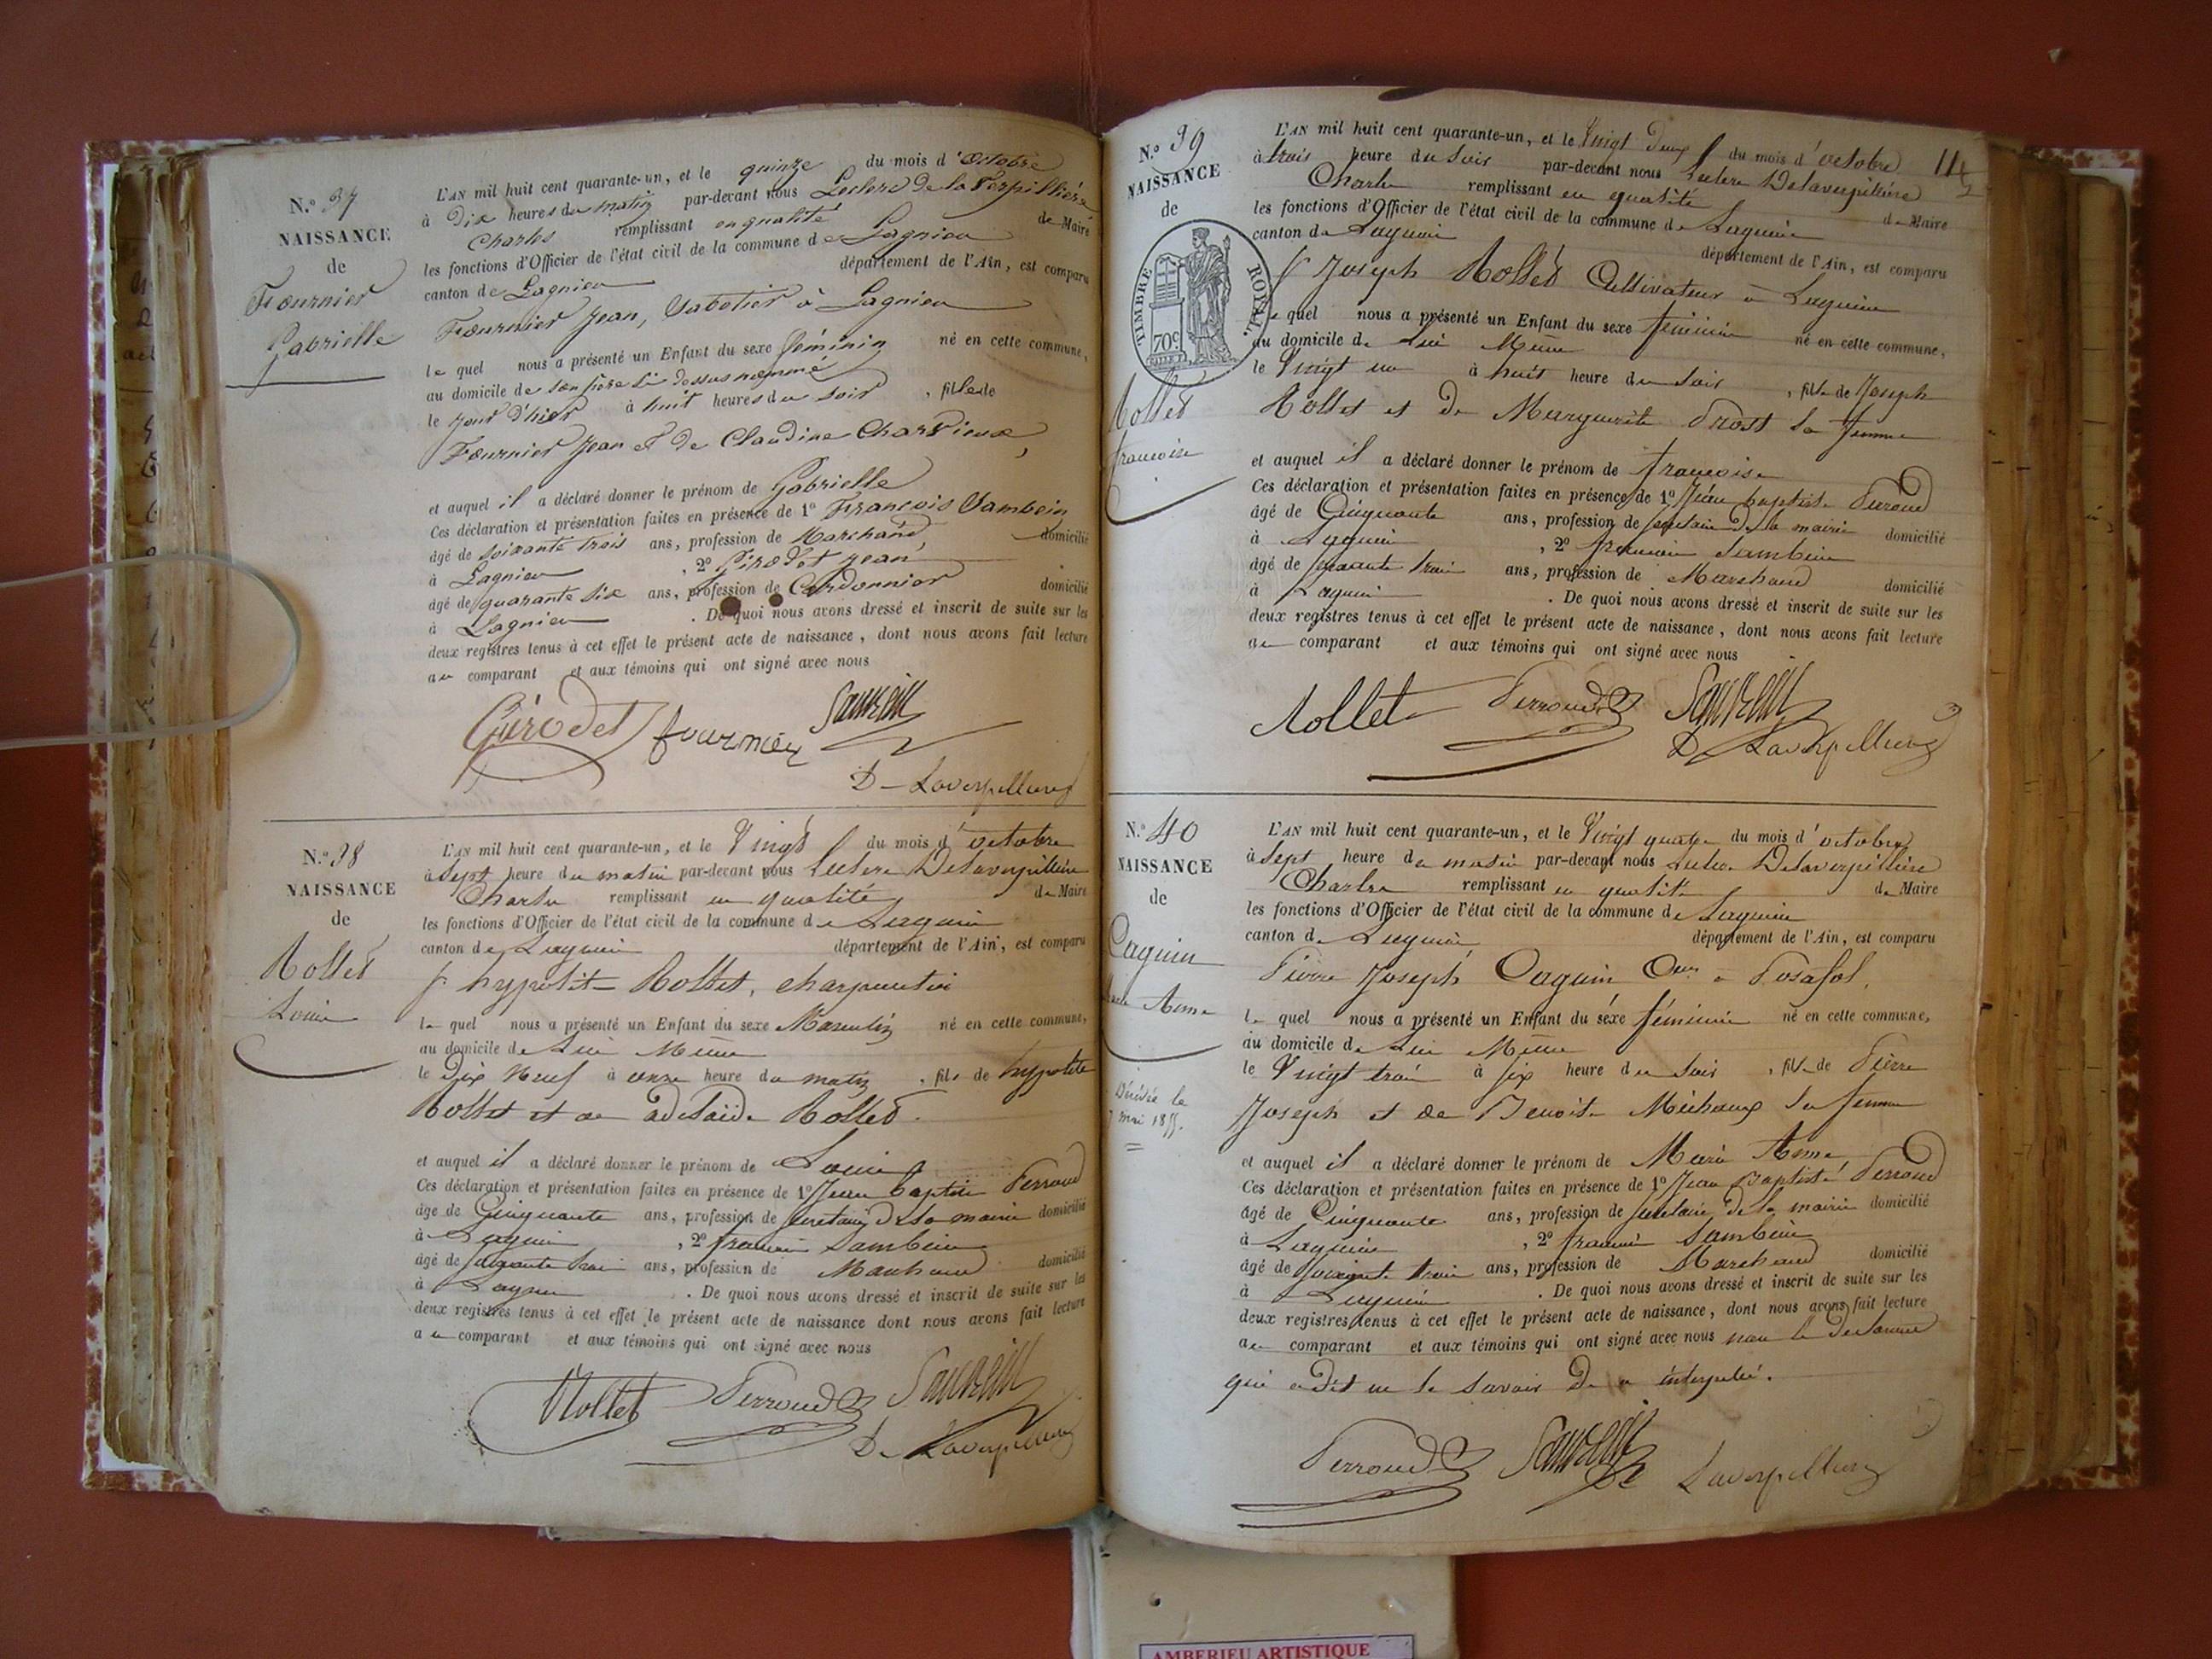 N.o 37
NAISSANCE
de
Fournier
Gabrielle
L'AN mil huit cent quarante-un, et le quinze du mois d'Octobre
à Dix heures du matin par-devant nous Leclerc de la Verpillière
Charles remplissant en qualité de Maire
les fonctions d'Officier de l'état civil de la commune de Lagnieu
canton de Lagnieu département de l'Ain, est comparu
Fournier Jean, Sabotier à Lagnieu
le quel nous a présenté un Enfant du sexe féminin né en cette commune,
au domicile de son père si dessus nommé
le jour d'hier à huit heures du soir, fille de
Fournier Jean et de Claudine Charvieux,
et auquel il a déclaré donner le prénom de Gabrielle
Ces déclaration et présentation faites en présence de 1o François Sambein
âgé de soixante trois ans, profession de Marchand, domicilié
à Lagnieu, 2o Girodet Jean,
âgé de quarante six ans, profession de Cordonnier domicilié
à Lagnieu. De quoi nous avons dressé et inscrit de suite sur les
deux registres tenus à cet effet le présent acte de naissance, dont nous avons fait lecture
au comparant et aux témoins qui ont signé avec nous
Girodet fournier
D-Laverpilliere
N.o 38
NAISSANCE
de
Rollet
Louis
L'AN mil huit cent quarante-un, et le Vingt du mois d'octobre
à Sept heure du matin par-devant nous Leclerc Delaverpillière
Charles remplissant en qualité de Maire
les fonctions d'Officier de l'état civil de la commune de Lagnieu
canton de Lagnieu département de l'Ain, est comparu
hypolite Rollet, charpentier
le quel nous a présenté un Enfant du sexe Masculin né en cette commune,
au domicile de lui Même
le Dix Neuf à onze heure du matin, fils de hypolite
Rollet et de adelaïde Rollet.
et auquel il a déclaré donner le prénom de Louis
Ces déclaration et présentation faites en présence de 1o Jean baptiste Perroud
âge de Cinquante ans, profession de secretaire de la mairie domicilié
à Lagnieu, 2o francois Sambein
âgé de soixante trois ans, profession de Marchand domicilié
à Lagnieu. De quoi nous avons dressé et inscrit de suite sur les
deux registres tenus à cet effet le présent acte de naissance dont nous avons fait lecture
au comparant et aux témoins qui ont signé avec nous
Rollet Perroud
De Laverpilliere
N.o 39
NAISSANCE
de
TIMBRE ROYAL.
70c
Rollet
francoise
114
L'AN mil huit cent quarante-un, et le Vingt Deux du mois d'octobre
à trois heure du soir par-devant nous Leclerc Delaverpillière
Charles remplissant en qualité de Maire
les fonctions d'Officier de l'état civil de la commune de Lagnieu
canton de Lagnieu département de l'Ain, est comparu
Joseph Rollet Cultivateur à Lagnieu
le quel nous a présenté un Enfant du sexe féminin né en cette commune,
au domicile de lui Même
le Vingt un à huit heure du soir, fille de Joseph
Rollet et de Marguerite Trost sa femme
et auquel il a déclaré donner le prénom de francoise
Ces déclaration et présentation faites en présence de 1o Jean baptiste Perroud
âgé de Cinquante ans, profession de secretaire de la mairie domicilié
à Lagnieu, 2o francois Sambein
âgé de soixante trois ans, profession de Marchand domicilié
à Lagnieu. De quoi nous avons dressé et inscrit de suite sur les
deux registres tenus à cet effet le présent acte de naissance, dont nous avons fait lecture
au comparant et aux témoins qui ont signé avec nous
Rollet Perroud
D Laverpilliere
N.o 40
NAISSANCE
de
Caguin
Marie Anne
Décédée le
7 mai
L'AN mil huit cent quarante-un, et le Vingt quatre du mois d'octobre
à Sept heure du matin par-devant nous Leclerc Delaverpillière
Charles remplissant en qualité de Maire
les fonctions d'Officier de l'état civil de la commune de Lagnieu
canton de Lagnieu département de l'Ain, est comparu
Pierre Joseph Caguin à Posafol,
le quel nous a présenté un Enfant du sexe féminin né en cette commune,
au domicile de lui Même
le Vingt trois à six heure du soir, fille de Pierre
Joseph et de Benoite Michaux sa femme
et auquel il a déclaré donner le prénom de Marie Anne
Ces déclaration et présentation faites en présence de 1o Jean baptiste Perroud
âgé de Cinquante ans, profession de secretaire de la mairie domicilié
à Lagnieu, 2o francois Sambein
âgé de soixante trois ans, profession de Marchand domicilié
à Lagnieu. De quoi nous avons dressé et inscrit de suite sur les
deux registres tenus à cet effet le présent acte de naissance, dont nous avons fait lecture
au comparant et aux témoins qui ont signé avec nous non le declarant
qui a dit ne le savoir De ce interpellé.
Perroud De Laverpilliere
AMBERIEU ARTISTIQUE